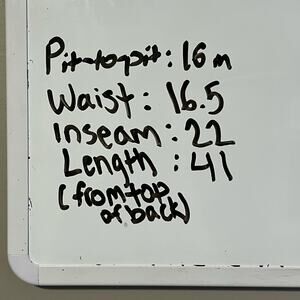 Pit-to-pit: 16 in
Waist: 16.5
Inseam: 22
Length: 41
(from top
of back)